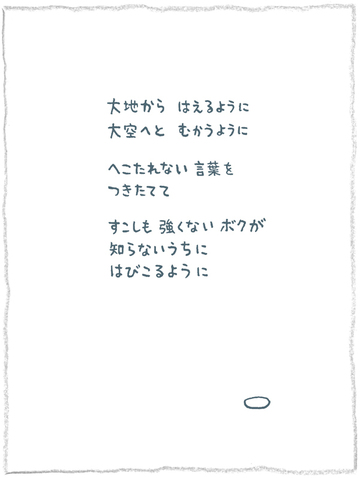 大地から はえるように
大空へと むかうように
へこたれない 言葉を
つきたてて
すこしも 強くない ボクが
知らないうちに
はびこるように